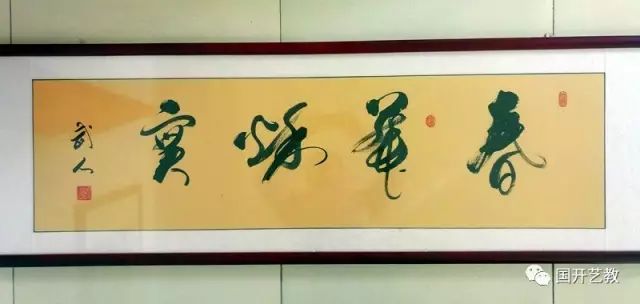 春華秋實
武人
国开艺教